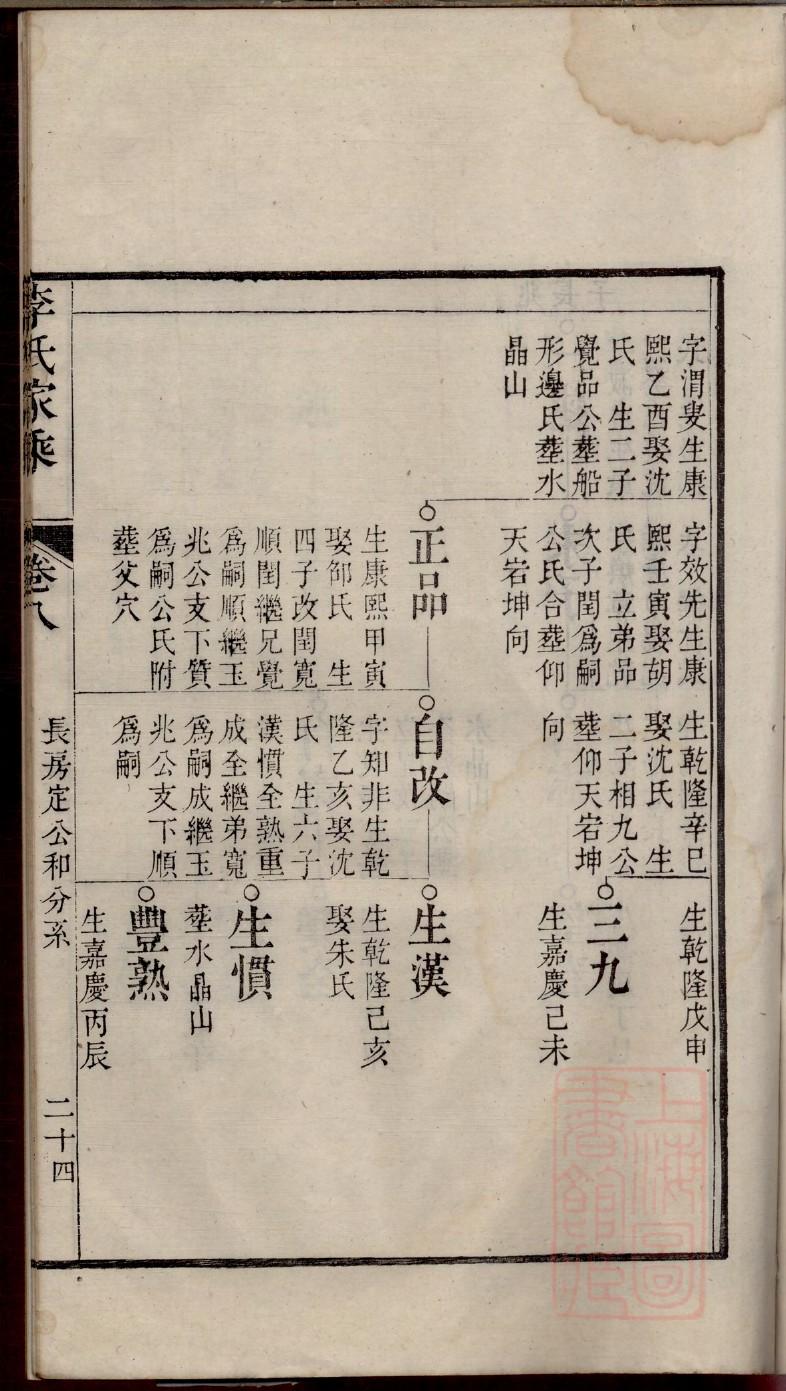 字渭叟生康
熙乙酉娶沈
氏　生二子
覺品公塟船
形邊氏塟水
晶山
字效先生康
熙壬寅娶胡
氏　立弟品
次子閏爲嗣
公氏合塟仰
天宕坤向
正品
生康熙甲寅
娶邵氏　生
四子改閏寬
順閏繼兄覺
爲嗣順繼玉
兆公支下質
爲嗣公氏附
塟父穴
生乾隆辛巳
娶沈氏　生
二子相九公
塟仰天宕坤
向
自改
字知非生乾
隆乙亥娶沈
氏　生六子
漢慣全熟重
成全繼弟寬
爲嗣成繼玉
兆公支下順
爲嗣
生乾隆戊申
三九
生嘉慶己未
生漢
生乾隆己亥
娶朱氏
生慣
塟水晶山
豐熟
生嘉慶丙辰
李氏家乘
卷八
長房定公和分系
二十四
上海圖
書館藏